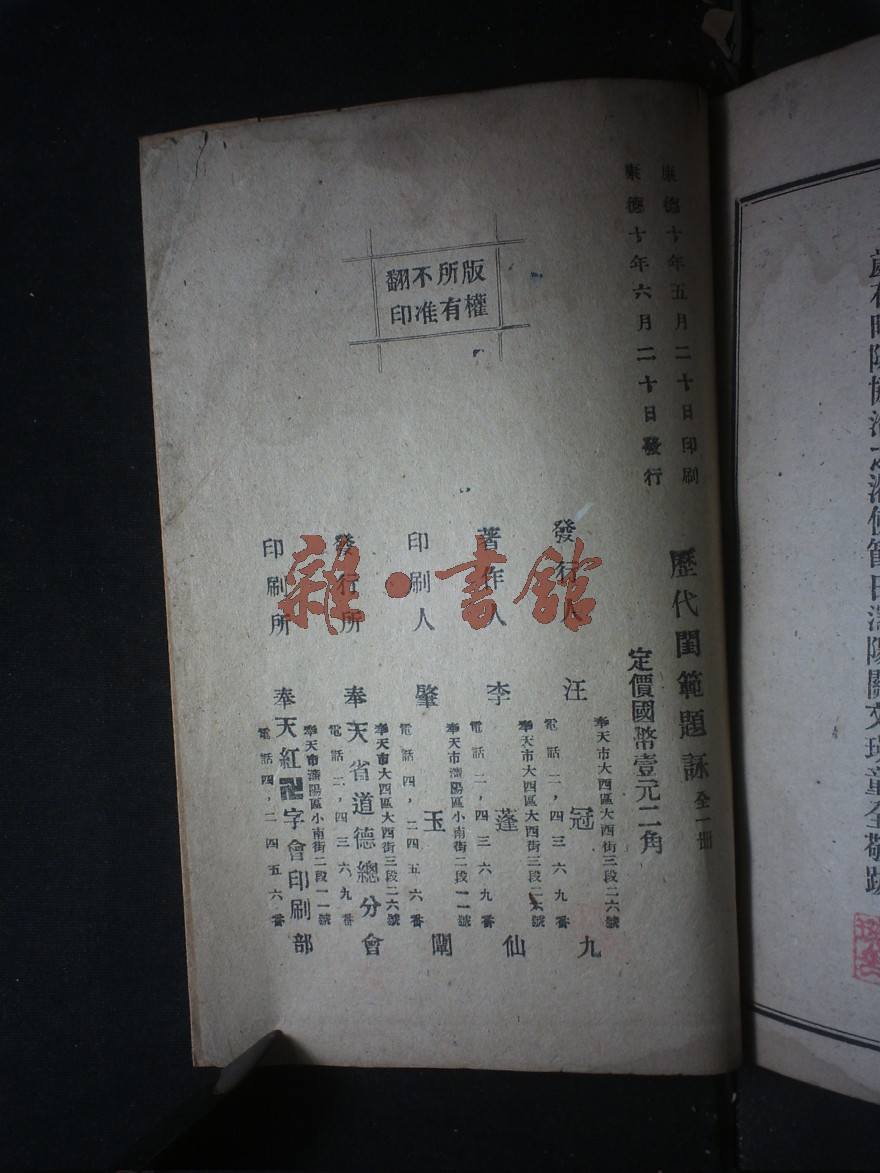 歲在昭陽協洽之瀋陽關文瑛敬跋
康德十年五月二十日印刷
康德十年六月二十日發行
歷代閨範題詠 全一冊
定價國幣壹元二角
版權
所有
不准
翻印
發行人
奉天市大西區大西街三段二六號
汪冠九
電話二，四三六九番
著作人
奉天市大西區大西街三段二六號
李蓬仙
電話二，四三六九番
印刷人
奉天市瀋陽區小南街二段一一號
肇玉闡
電話四，二四五六番
發行所
奉天市大西區大西街三段二六號
奉天省道德總分會
電話二，四三六九番
印刷所
奉天市瀋陽區小南街二段一一號
奉天紅卍字會印刷部
電話四，二四五六番
雜·書館